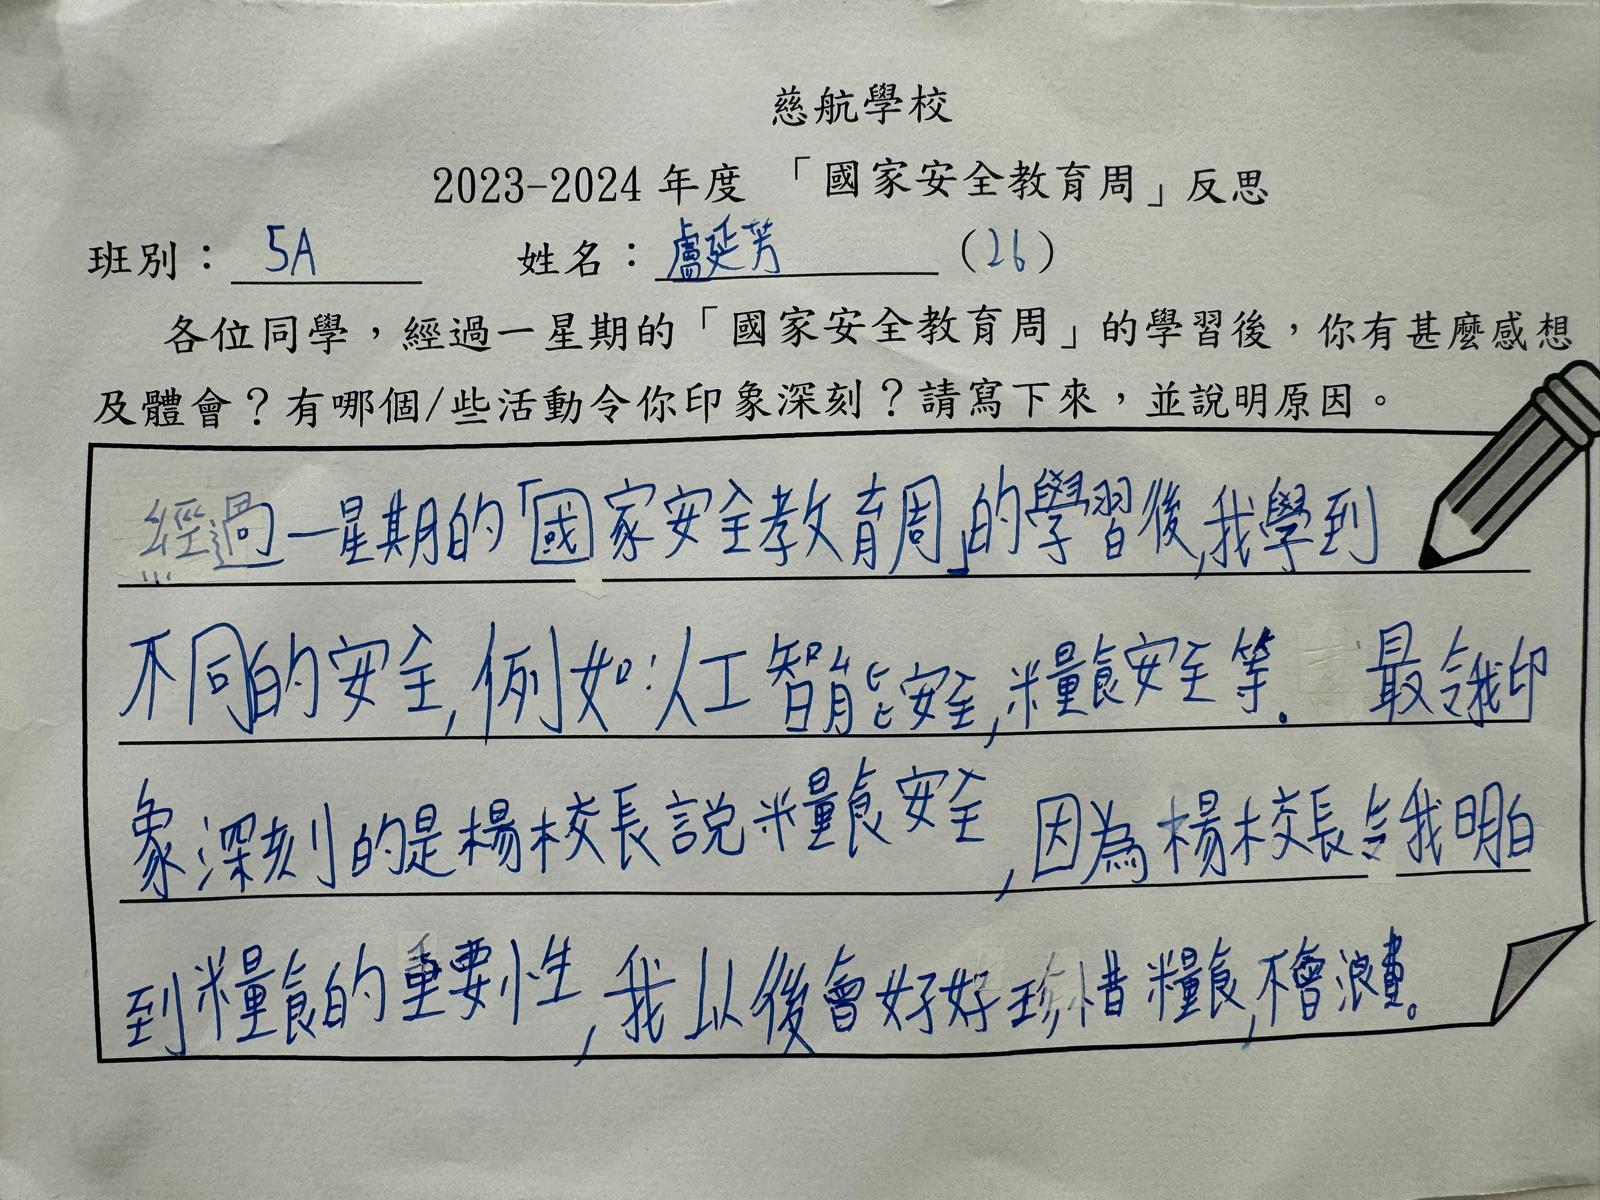 慈航學校
2023-2024 年度 「國家安全教育周」反思
班別：5A 姓名：盧延芳（26）
各位同學，經過一星期的「國家安全教育周」的學習後，你有甚麼感想
及體會？有哪個/些活動令你印象深刻？請寫下來，並說明原因。
經過一星期的「國家安全教育周」的學習後,我學到
不同的安全,例如:人工智能安全,糧食安全等。最令我印
象深刻的是楊校長說糧食安全,因為楊校長令我明白
到糧食的重要性,我以後會好好珍惜糧食,不會浪費。